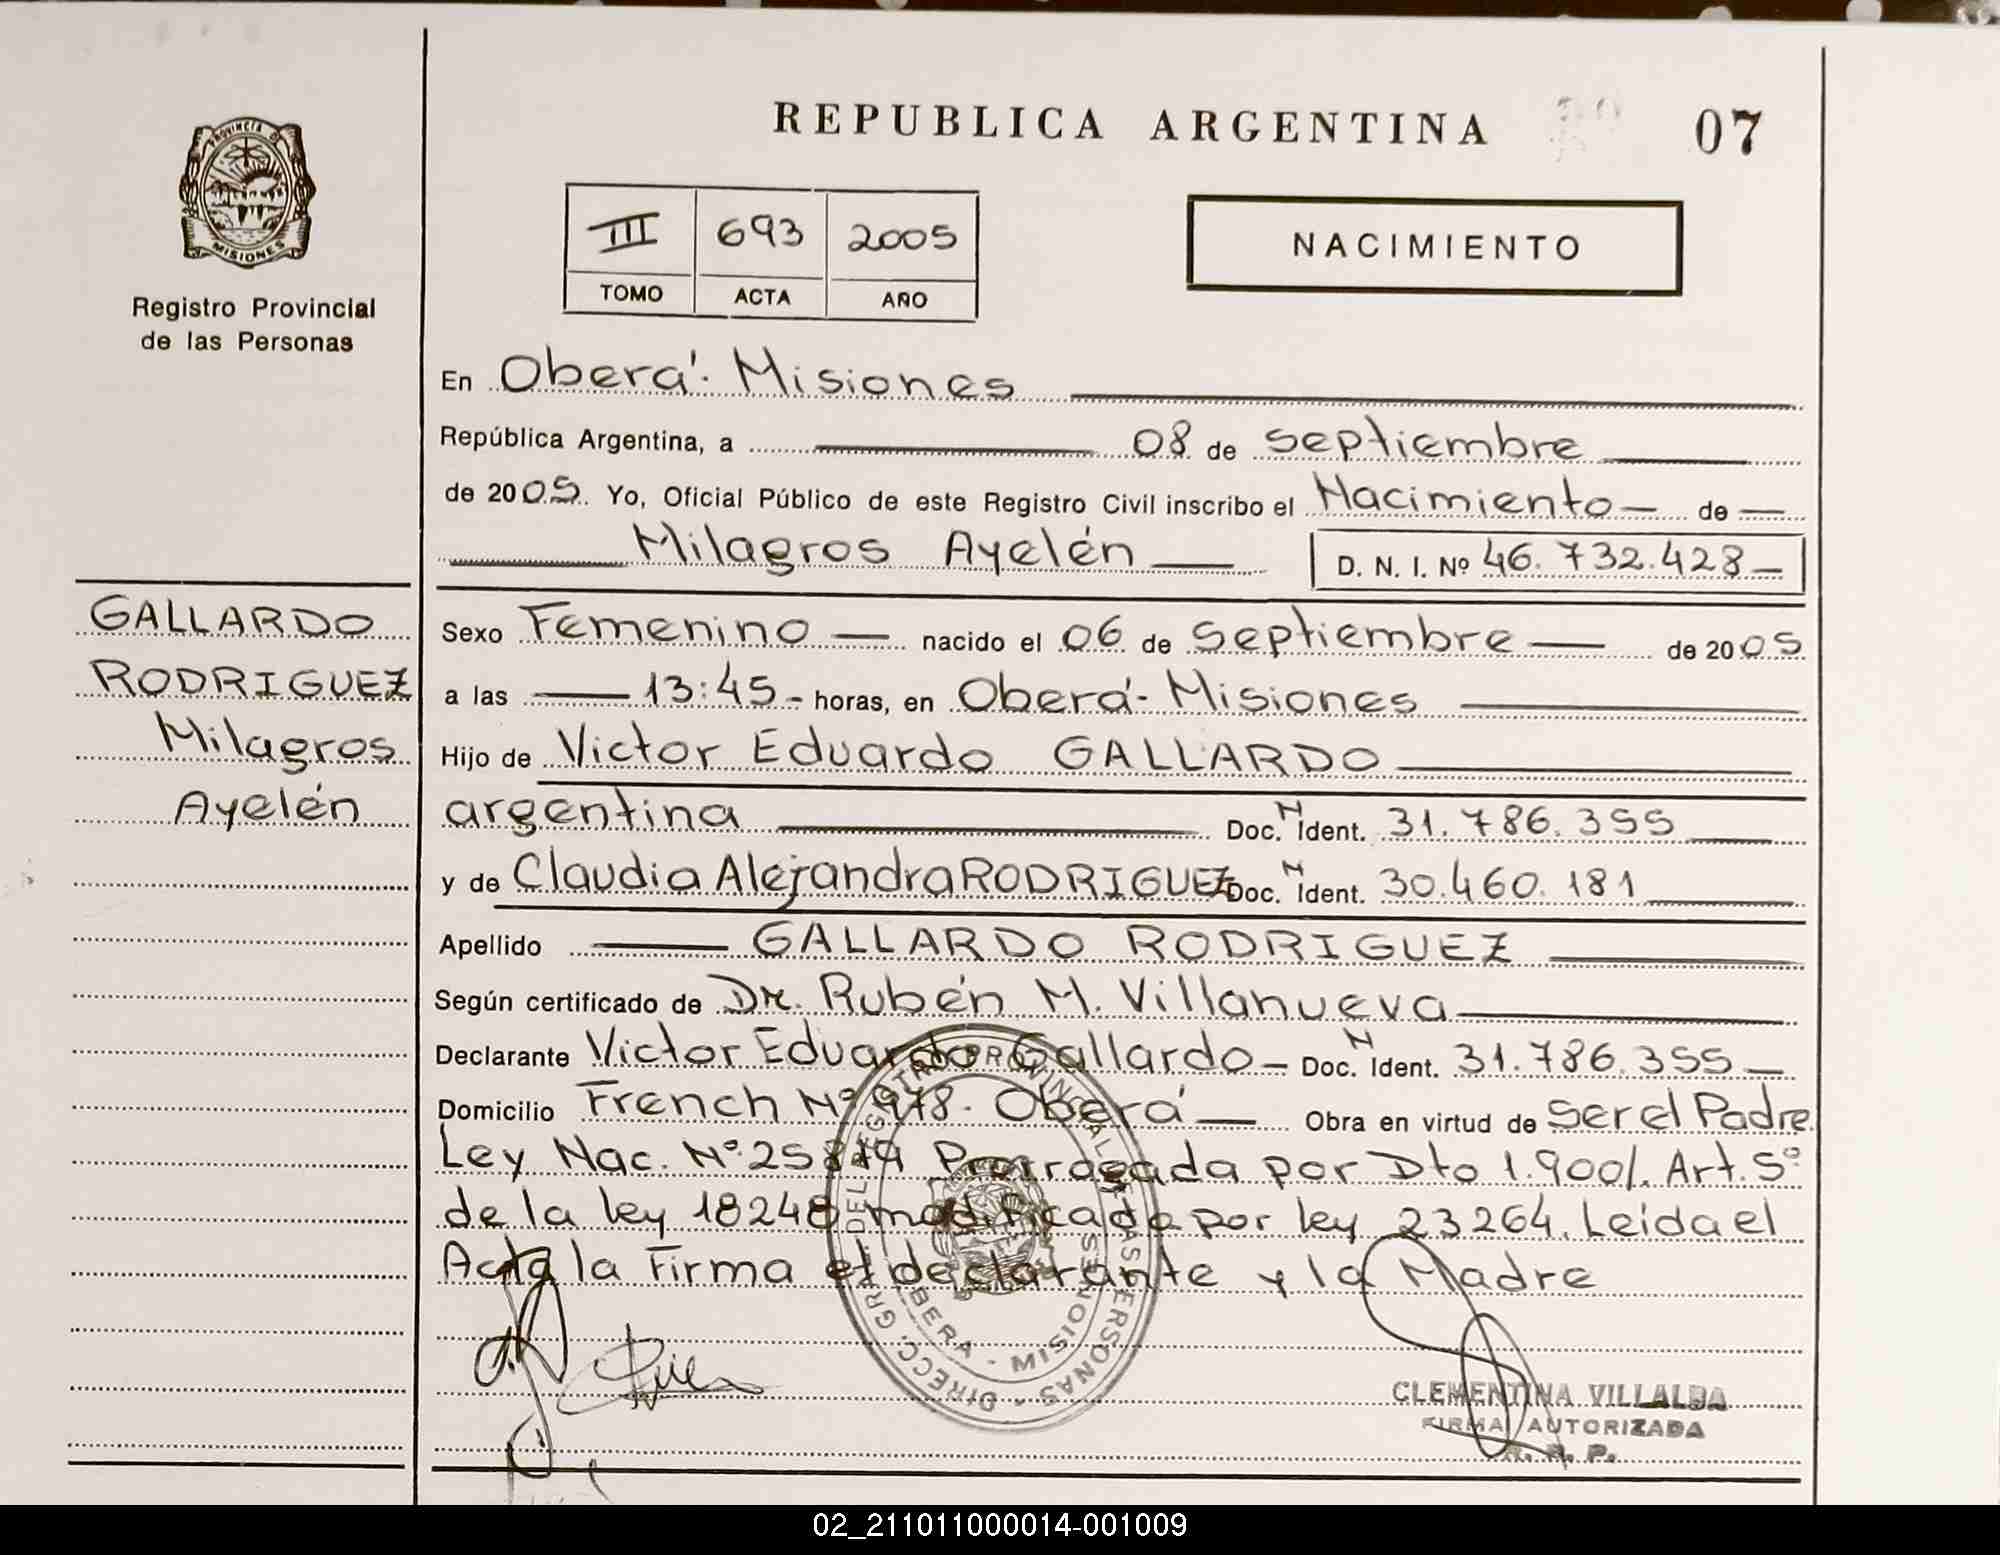 REPUBLICA ARGENTINA
07
PROVINCIA DE
MISIONES
Registro Provincial
de las Personas
III 693 2005
TOMO ACTA AÑO
NACIMIENTO
En Oberá - Misiones
República Argentina, a 08 de septiembre
de 2005. Yo, Oficial Público de este Registro Civil inscribo el Nacimiento — de —
Milagros Ayelén — D. N. I. Nº 46.732.428 —
GALLARDO
RODRIGUEZ
Milagros
Ayelén
Sexo Femenino — nacido el 06 de septiembre — de 2005
a las — 13:45 - horas, en Oberá - Misiones
Hijo de Victor Eduardo GALLARDO
argentina Doc. N Ident. 31.786.355
y de Claudia Alejandra RODRIGUEZ Doc. N Ident. 30.460.181
Apellido GALLARDO RODRIGUEZ
Según certificado de Dr. Rubén M. Villanueva
Declarante Victor Eduardo Gallardo — Doc. N Ident. 31.786.355 —
Domicilio French Nº 978 - Oberá — Obra en virtud de ser el Padre.
Ley Nac. Nº 25819 Prorrogada por Dto 1.900/. Art. 5º
de la ley 18248 modificada por ley 23264. Leida el
Acta la Firma el declarante y la Madre
DIRECC. GRAL. DEL REGISTRO PROVINCIAL DE LAS PERSONAS
OBERA - MISIONES
CLEMENTINA VILLALBA
FIRMA AUTORIZADA
R. P.
02_211011000014-001009